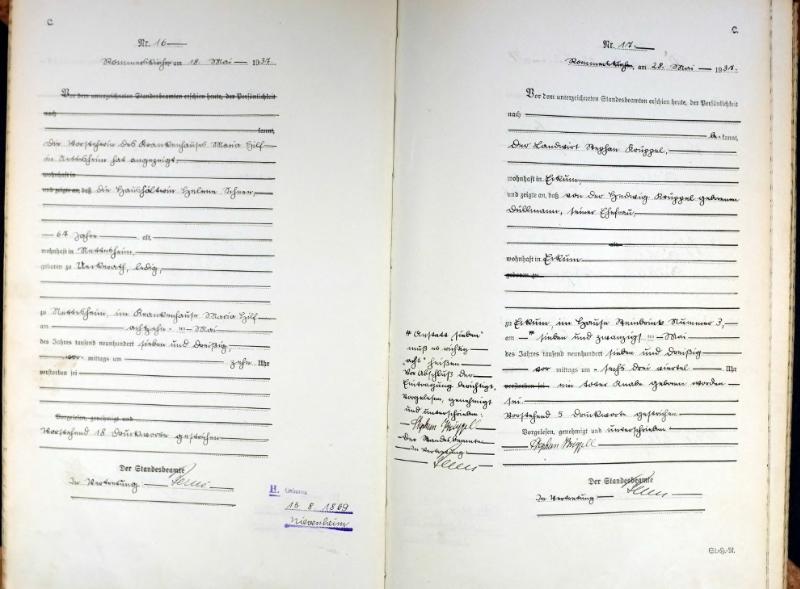 C.
Nr. 16
Rommerskirchen am 18. Mai 1937.
Vor dem unterzeichneten Standesbeamten erschien heute, der Persönlichkeit
nach
kannt,
Die Vorsteherin des Krankenhauses Maria Hilf
in Nettesheim hat angezeigt,
wohnhaft in
und zeigte an, daß die Haushälterin Helene Schneer,
67 Jahre alt,
wohnhaft in Nettesheim,
geboren zu ledig,
zu Nettesheim, im Krankenhause Maria Hilf
am achtzehn ten Mai
des Jahres tausend neunhundert sieben und dreißig,
vor mittags um zehn Uhr
verstorben sei
Vorgelesen, genehmigt und
Vorstehend 18 Druckworte gestrichen
Der Standesbeamte
In Vertretung
H. Geboren
15. 8. 1869
Nievenheim
C.
Nr. 17
Rommerskirchen, am 28. Mai 1937.
Vor dem unterzeichneten Standesbeamten erschien heute, der Persönlichkeit
nach
be kannt,
Der Landwirt Stephan Krüppel,
wohnhaft in Eckum,
und zeigte an, daß von der Hedwig Krüppel geborenen
Düllmann, seiner Ehefrau,
alt,
wohnhaft in Eckum
geboren zu
zu Eckum, im Hause Steinbrink Nummer 3,
am * sieben und zwanzigs ten Mai
des Jahres tausend neunhundert sieben und dreißig
vor mittags um sechs drei viertel Uhr
verstorben sei ein toter Knabe geboren worden
sei.
Vorstehend 5 Druckworte gestrichen
Vorgelesen, genehmigt und unterschrieben
Stephan Krüppell
Der Standesbeamte
In Vertretung
* Anstatt "sieben"
muß es richtig
"acht" heißen
Vor Abschluß der
Eintragung berichtigt,
vorgelesen, genehmigt
und unterschrieben.
Stephan Krüppell
Der Standesbeamte
In Vertretung